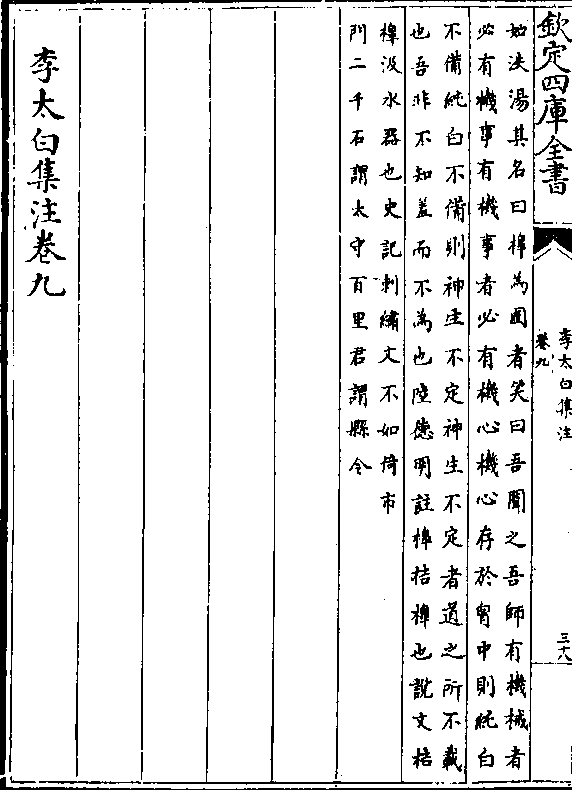 欽定四庫全書
李太白集注
卷九
三十八
如泆湯其名曰槔為圃者笑曰吾聞之吾師有機械者
必有機事有機事者必有機心機心存於胷中則純白
不備純白不備則神生不定神生不定者道之所不載
也吾非不知羞而不為也陸德明註槔桔槔也說文桔
槔汲水器也史記刺繡文不如倚市
門二千石謂太守百里君謂縣令
李太白集注卷九